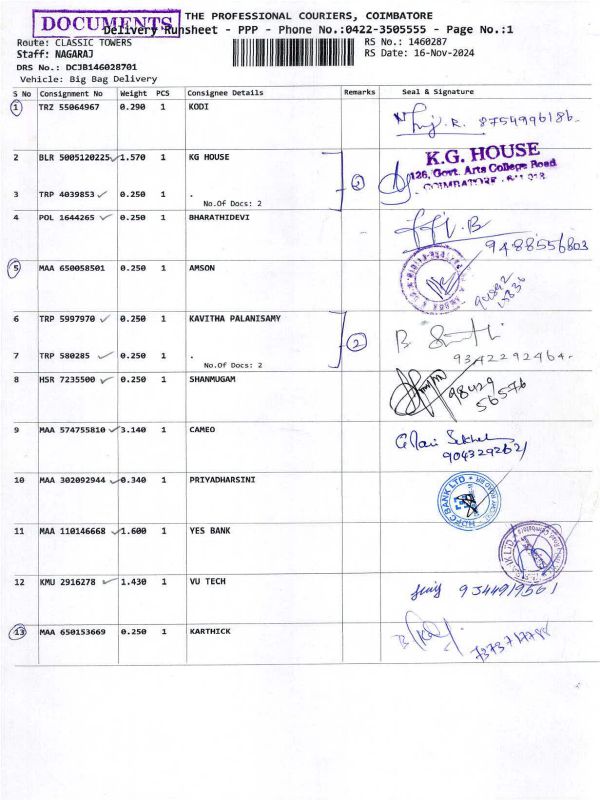 DOCUMENTS THE PROFESSIONAL COURIERS, COIMBATORE
Delivery Runsheet - PPP - Phone No.:0422-3505555 - Page No.:1
Route: CLASSIC TOWERS RS No.: 1460287
Staff: NAGARAJ RS Date: 16-Nov-2024
DRS No.: DCJB146028701
Vehicle: Big Bag Delivery
S No Consignment No Weight PCS Consignee Details Remarks Seal & Signature
1 TRZ 55064967 0.290 1 KODI 8754996186
2 BLR 5005120225 1.570 1 KG HOUSE K.G. HOUSE
126, Govt. Arts College Road
COIMBATORE
3 TRP 4039853 0.250 1 .
No.Of Docs: 2
4 POL 1644265 0.250 1 BHARATHIDEVI 9488556803
5 MAA 650058501 0.250 1 AMSON
6 TRP 5997970 0.250 1 KAVITHA PALANISAMY 2
7 TRP 580285 0.250 1 . 9342292464
No.Of Docs: 2
8 HSR 7235500 0.250 1 SHANMUGAM 98429
56576
9 MAA 574755810 3.140 1 CAMEO
9043292621
10 MAA 302092944 0.340 1 PRIYADHARSINI HDFC BANK LTD
11 MAA 110146668 1.600 1 YES BANK
12 KMU 2916278 1.430 1 VU TECH 9344919561
13 MAA 650153669 0.250 1 KARTHICK 7373717788